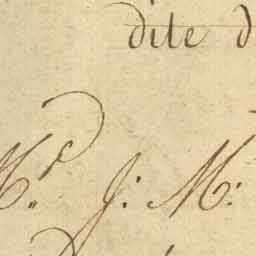 dite d
Mr. J: M: